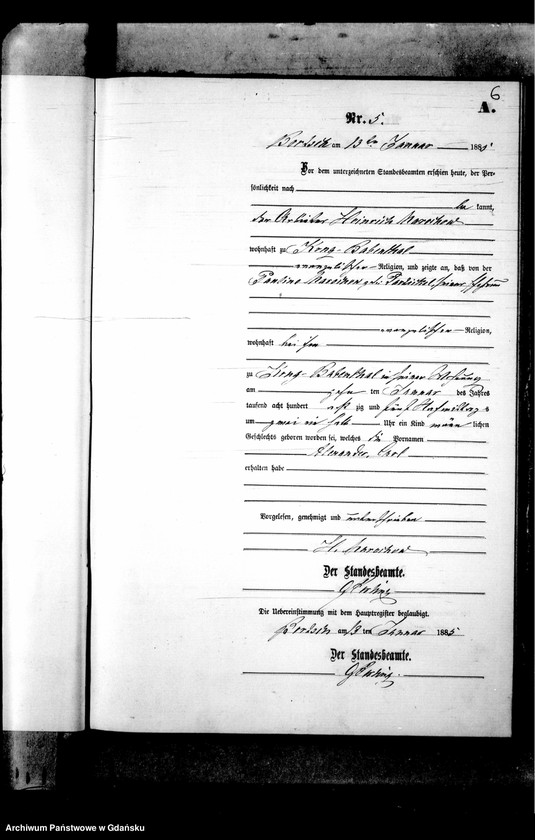 6
A.
Nr. 5.
am 13 ten Januar 1885
Vor dem unterzeichneten Standesbeamten erschien heute, der Per-
sönlichkeit nach
be kannt,
der Arbeiter Heinrich
wohnhaft zu Königl. Babenthal
evangelischer Religion, und zeigte an, daß von der
Pauline geb. seiner Ehefrau
evangelischer Religion,
wohnhaft bei ihm
zu Königl. Babenthal in seiner Wohnung
am zehn ten Januar des Jahres
tausend acht hundert acht zig und fünf Nachmittags
um zwei ein halb Uhr ein Kind männ lichen
Geschlechts geboren worden sei, welches die Vornamen
Alexander Carl
erhalten habe
Vorgelesen, genehmigt und unterschrieben
H.
Der Standesbeamte.
Die Uebereinstimmung mit dem Hauptregister beglaubigt.
am 13 ten Januar 1885
Der Standesbeamte.
Archiwum Państwowe w Gdańsku